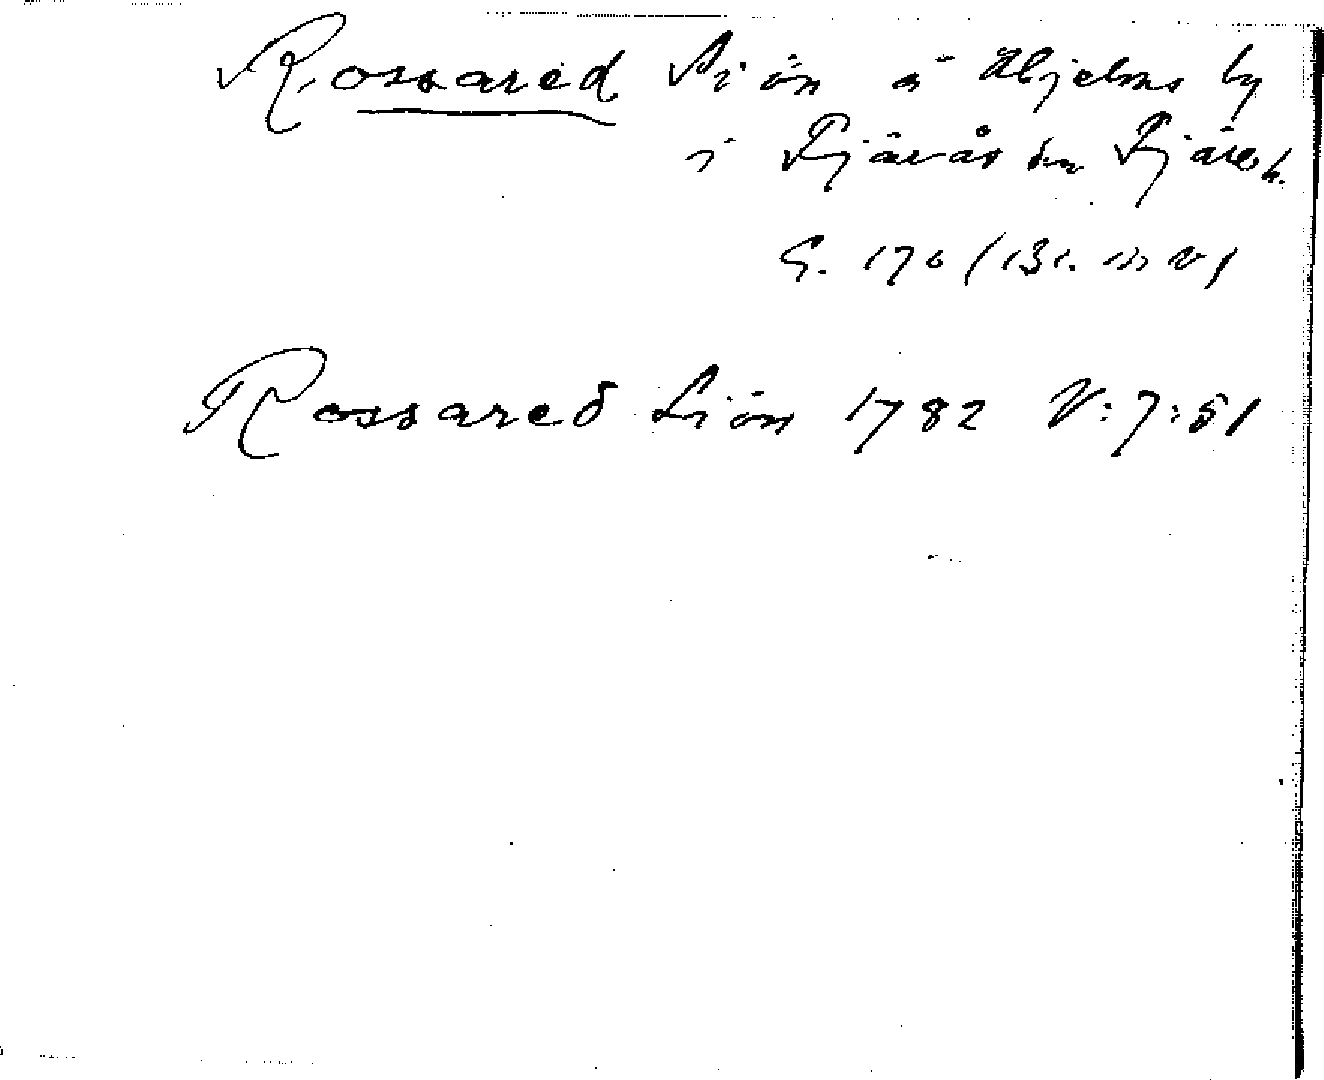 Rossared Siön å Abjelms by
i Fjärås sn Fjäre h.
G. 170 (131.
Rossared Siön 1782 V:7:51